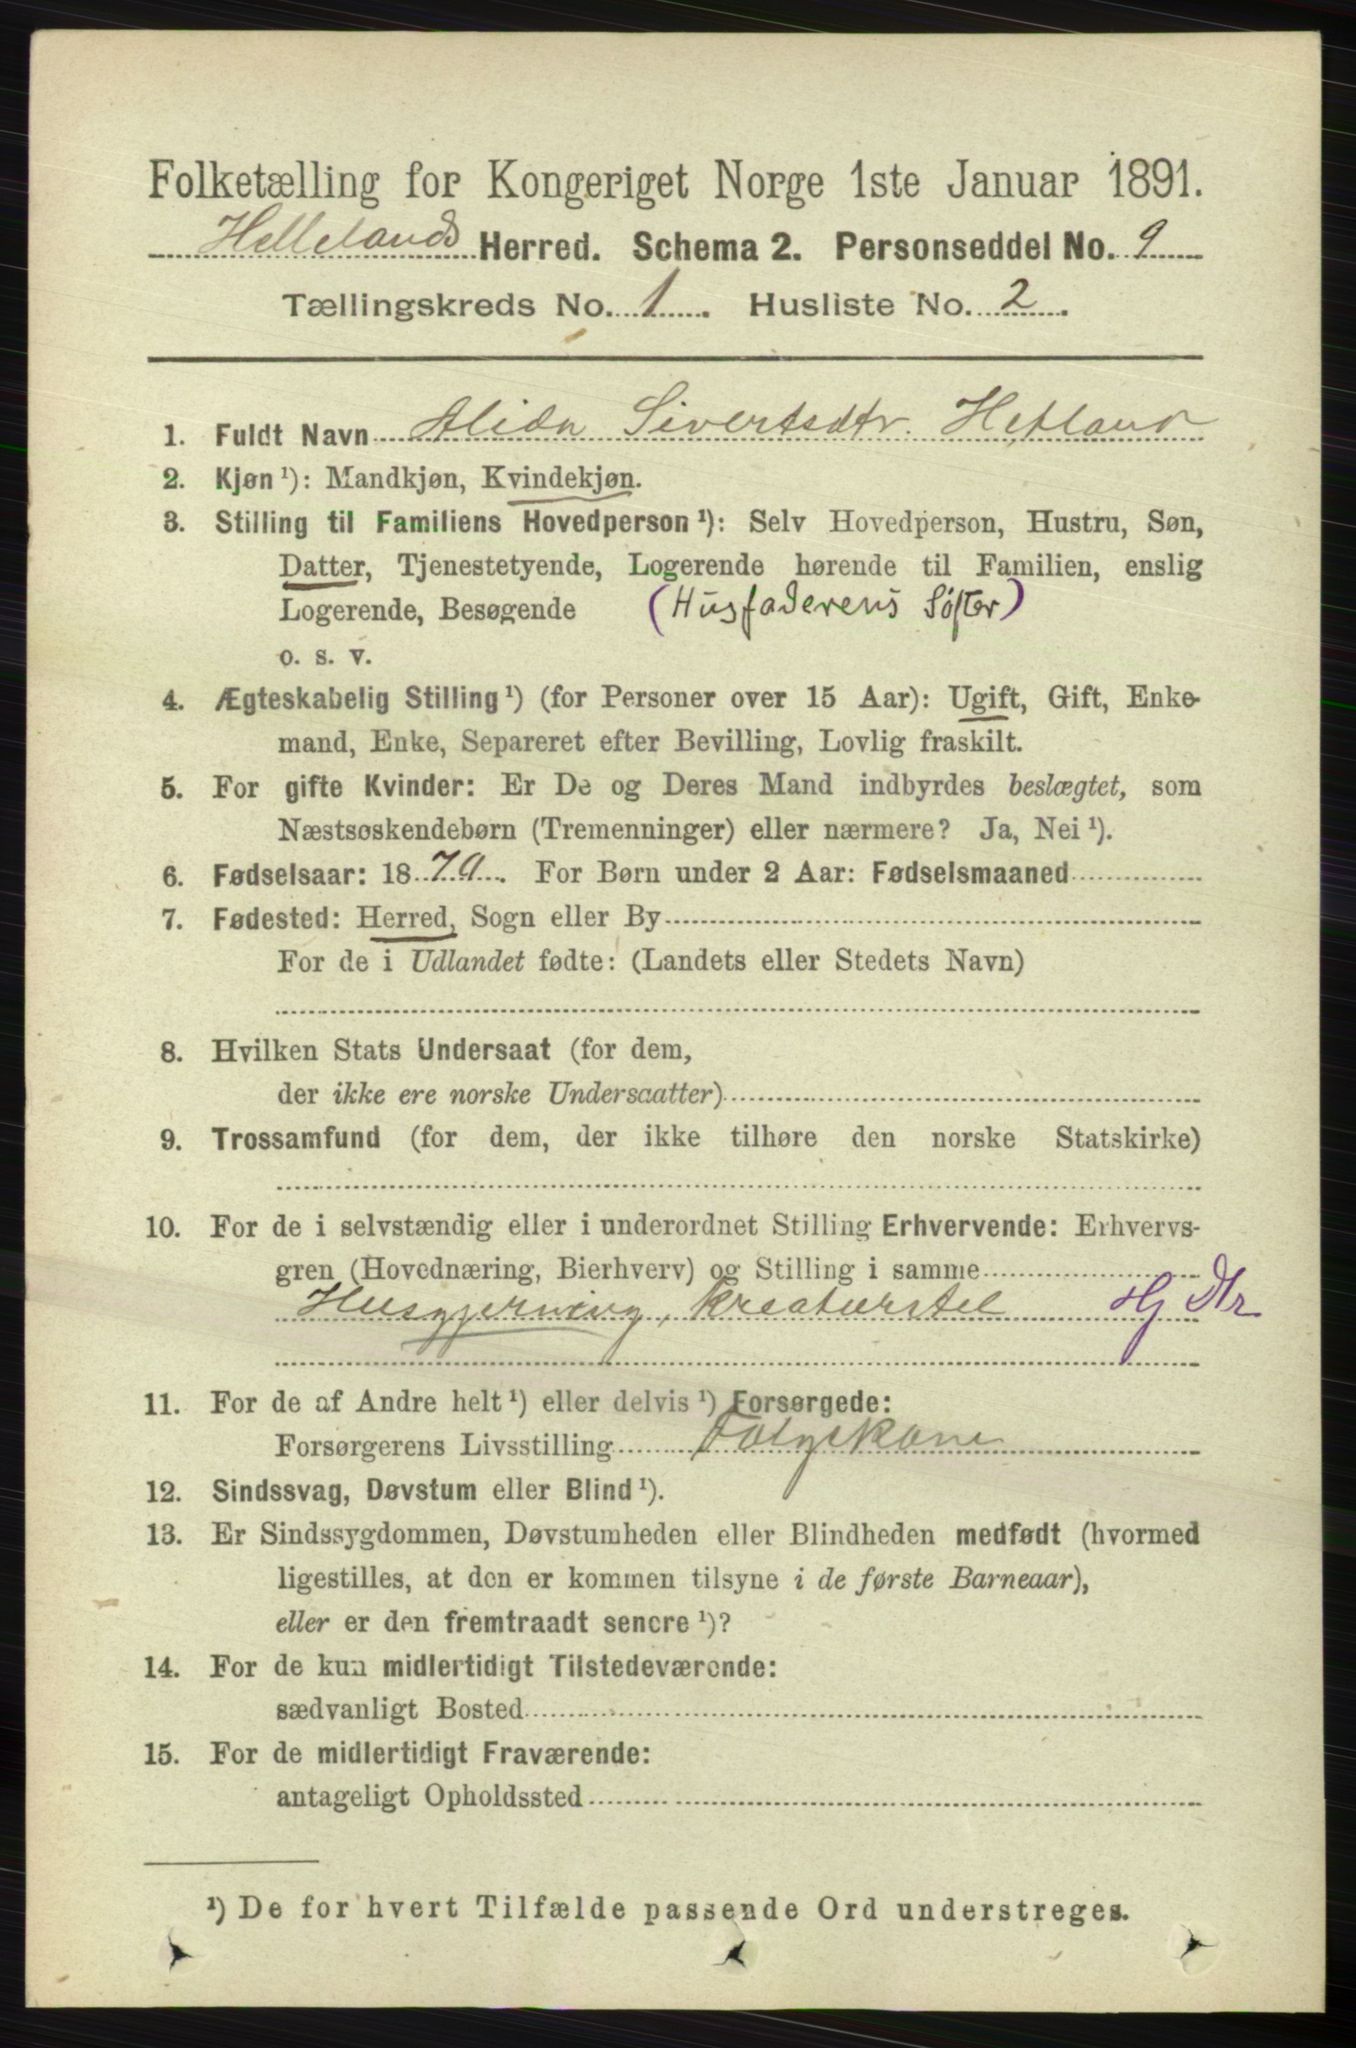 Folketælling for Kongeriget Norge 1ste Januar 1891.
Hellelands Herred. Schema 2. Personseddel No. 9
Tællingskreds No. 1. Husliste No. 2.
1. Fuldt Navn Alida Sivertsdtr. Hetland
2. Kjøn ¹): Mandkjøn, Kvindekjøn.
3. Stilling til Familiens Hovedperson ¹): Selv Hovedperson, Hustru, Søn,
Datter, Tjenestetyende, Logerende hørende til Familien, enslig
Logerende, Besøgende (Husfaderens Søster)
o. s. v.
4. Ægteskabelig Stilling ¹) (for Personer over 15 Aar): Ugift, Gift, Enke-
mand, Enke, Separeret efter Bevilling, Lovlig fraskilt.
5. For gifte Kvinder: Er De og Deres Mand indbyrdes beslægtet, som
Næstsøskendebørn (Tremenninger) eller nærmere? Ja, Nei ¹).
6. Fødselsaar: 18 70. For Børn under 2 Aar: Fødselsmaaned
7. Fødested: Herred, Sogn eller By
For de i Udlandet fødte: (Landets eller Stedets Navn)
8. Hvilken Stats Undersaat (for dem,
der ikke ere norske Undersaatter)
9. Trossamfund (for dem, der ikke tilhøre den norske Statskirke)
10. For de i selvstændig eller i underordnet Stilling Erhvervende: Erhvervs-
gren (Hovednæring, Bierhverv) og Stilling i samme
Husgjerning, kreaturstel Hg Dtr
11. For de af Andre helt ¹) eller delvis ¹) Forsørgede:
Forsørgerens Livsstilling Folgekone
12. Sindssvag, Døvstum eller Blind ¹).
13. Er Sindssygdommen, Døvstumheden eller Blindheden medfødt (hvormed
ligestilles, at den er kommen tilsyne i de første Barneaar),
eller er den fremtraadt senere ¹)?
14. For de kun midlertidigt Tilstedeværende:
sædvanligt Bosted
15. For de midlertidigt Fraværende:
antageligt Opholdssted
¹) De for hvert Tilfælde passende Ord understreges.